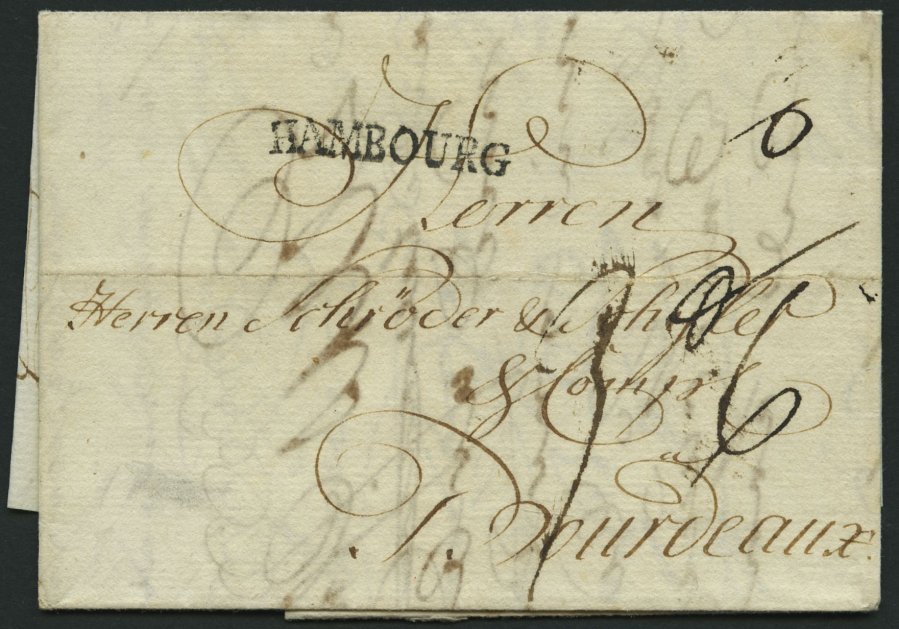 HAMBOURG
Herren
Herren Schröder & Schÿler
& Comp.
à
Bourdeaux.